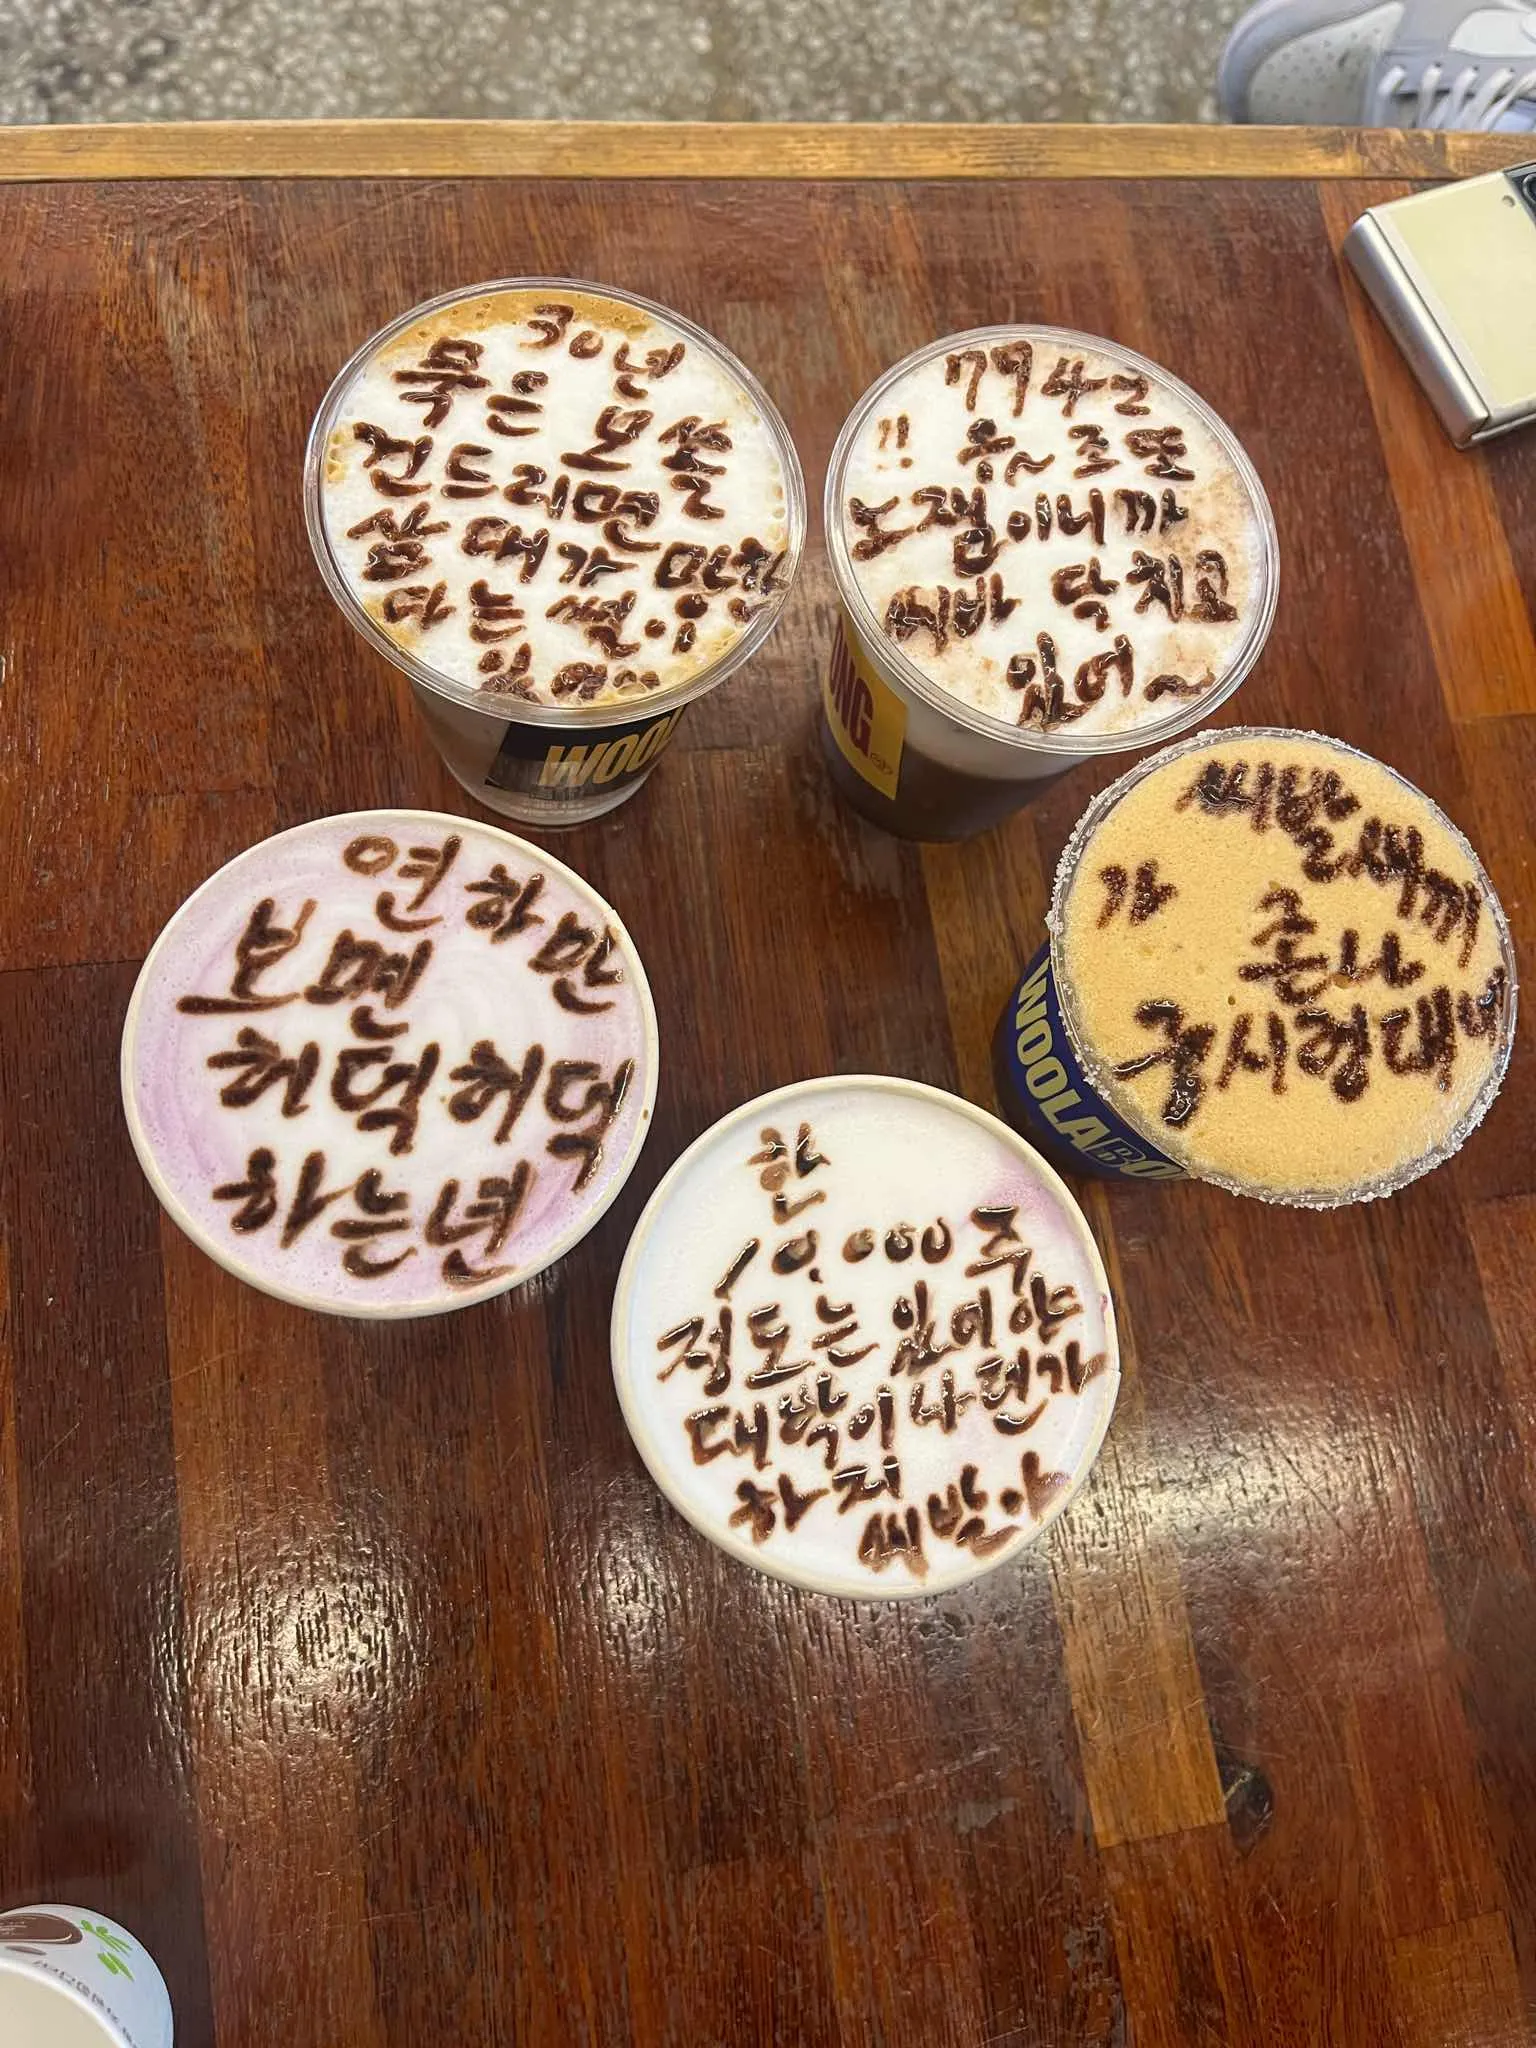 30년
묵은 모쏠
건드리면
삼대가 망한
다는 썰이
있어..
7942
!! 우~ 조또
노잼이니까
씨바 닥치고
있어~
WOOL
ONG
씨발새끼
가 존나
궁시렁대네
WOOLA
연하만
보면
허덕허덕
하는년
한
10,000주
정도는 있어야
대박이나던가
하지
씨발아